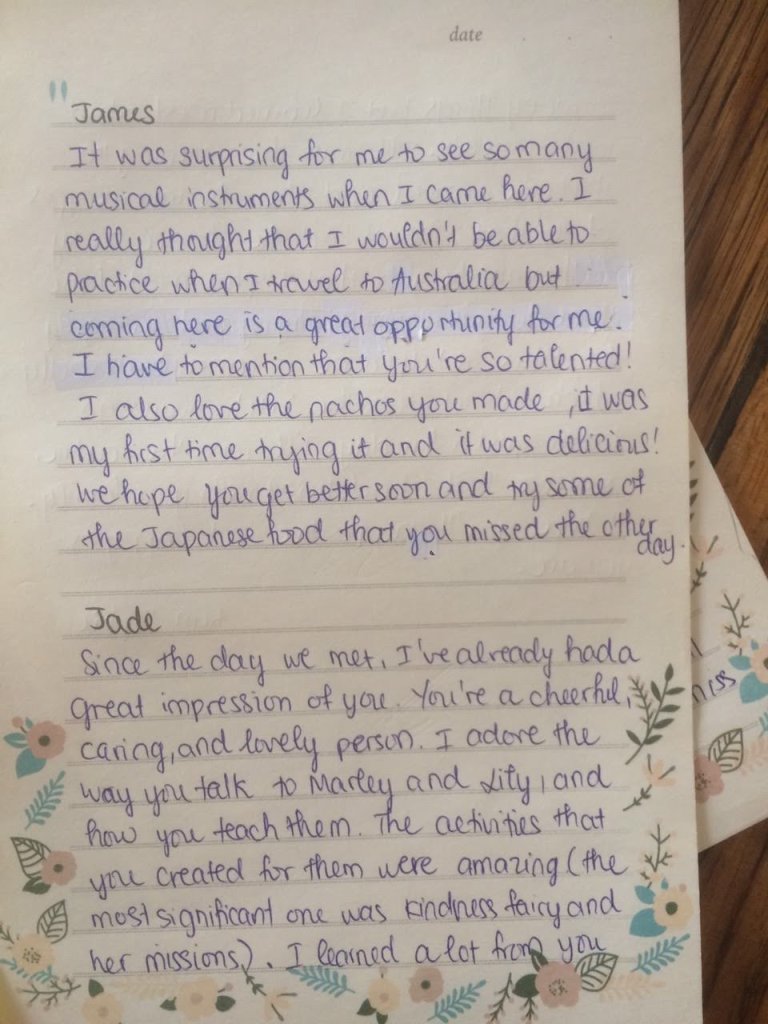 date
"
James
It was surprising for me to see so many
musical instruments when I came here. I
really thought that I wouldn't be able to
practice when I travel to Australia but
coming here is a great opportunity for me.
I have to mention that you're so talented!
I also love the nachos you made, it was
my first time trying it and it was delicious!
We hope you get better soon and try some of
the Japanese food that you missed the other
day.
Jade
Since the day we met, I've already had a
great impression of you. You're a cheerful,
caring, and lovely person. I adore the
way you talk to Marley and Lily, and
how you teach them. The activities that
you created for them were amazing (the
most significant one was kindness fairy and
her missions). I learned a lot from you